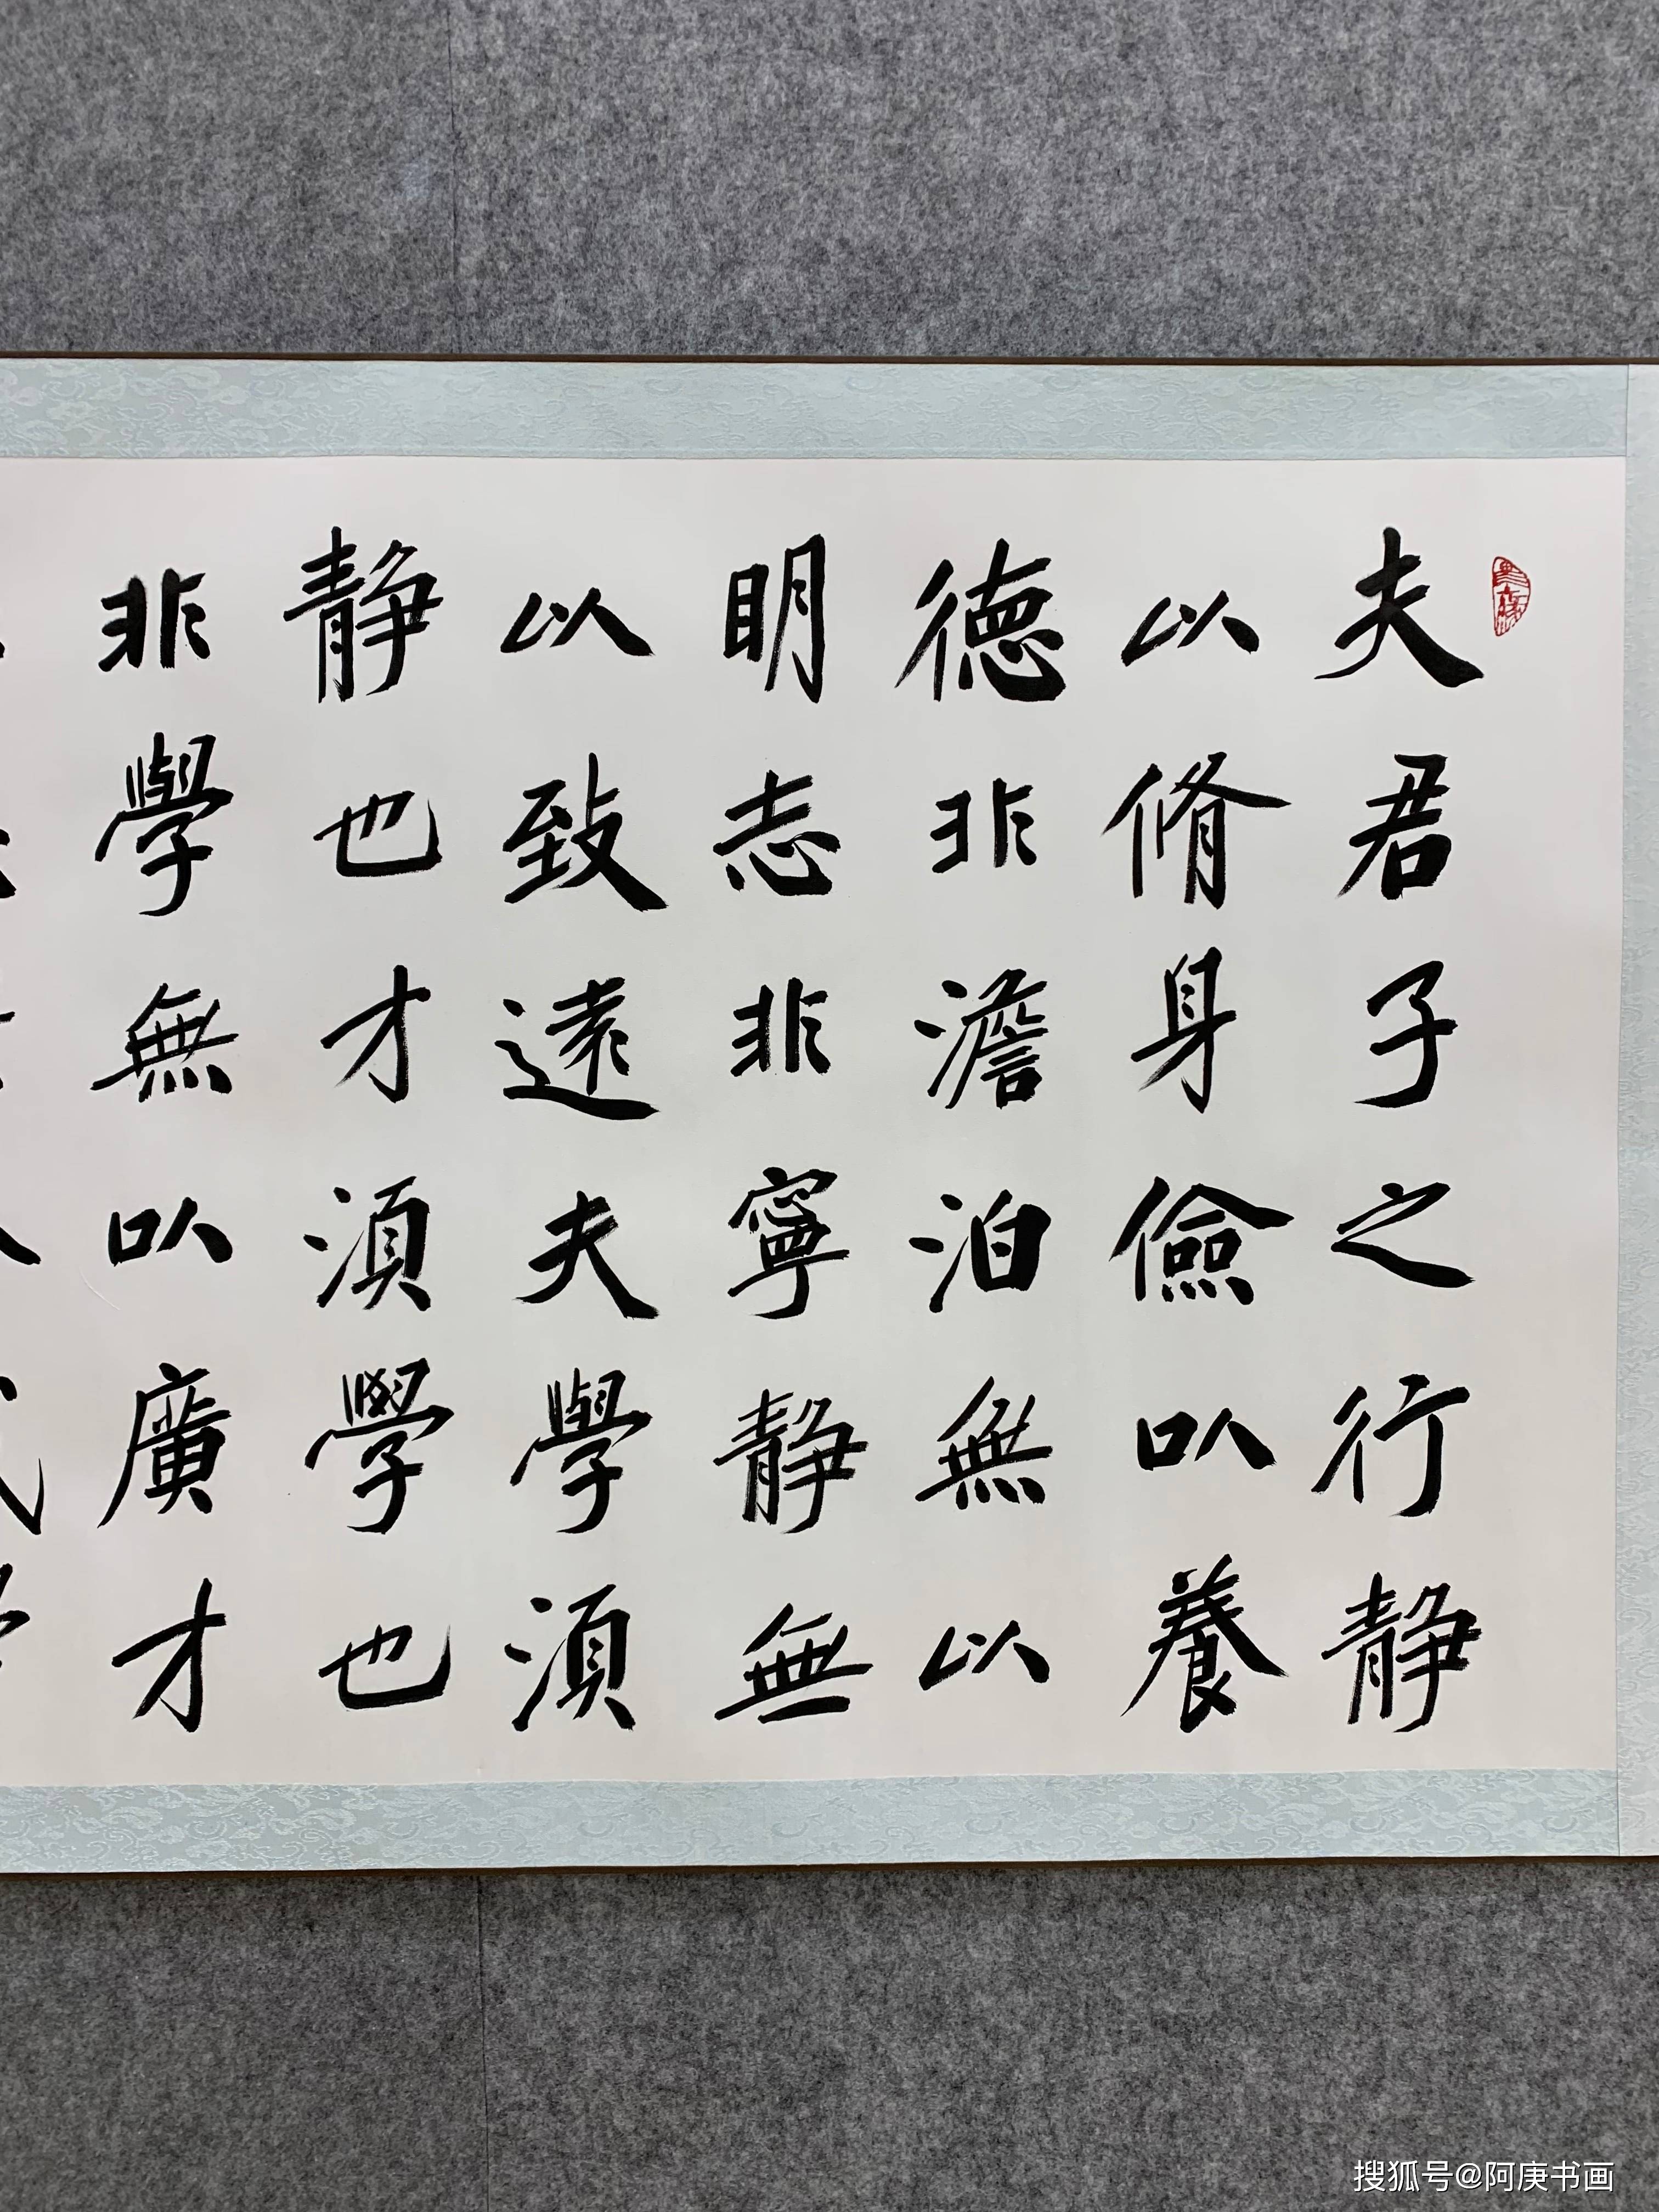 夫君子之行静
以脩身儉以養
德非澹泊無以
明志非寧静無
以致遠夫學須
静也才須學也
非學無以廣才
搜狐号@阿庚书画